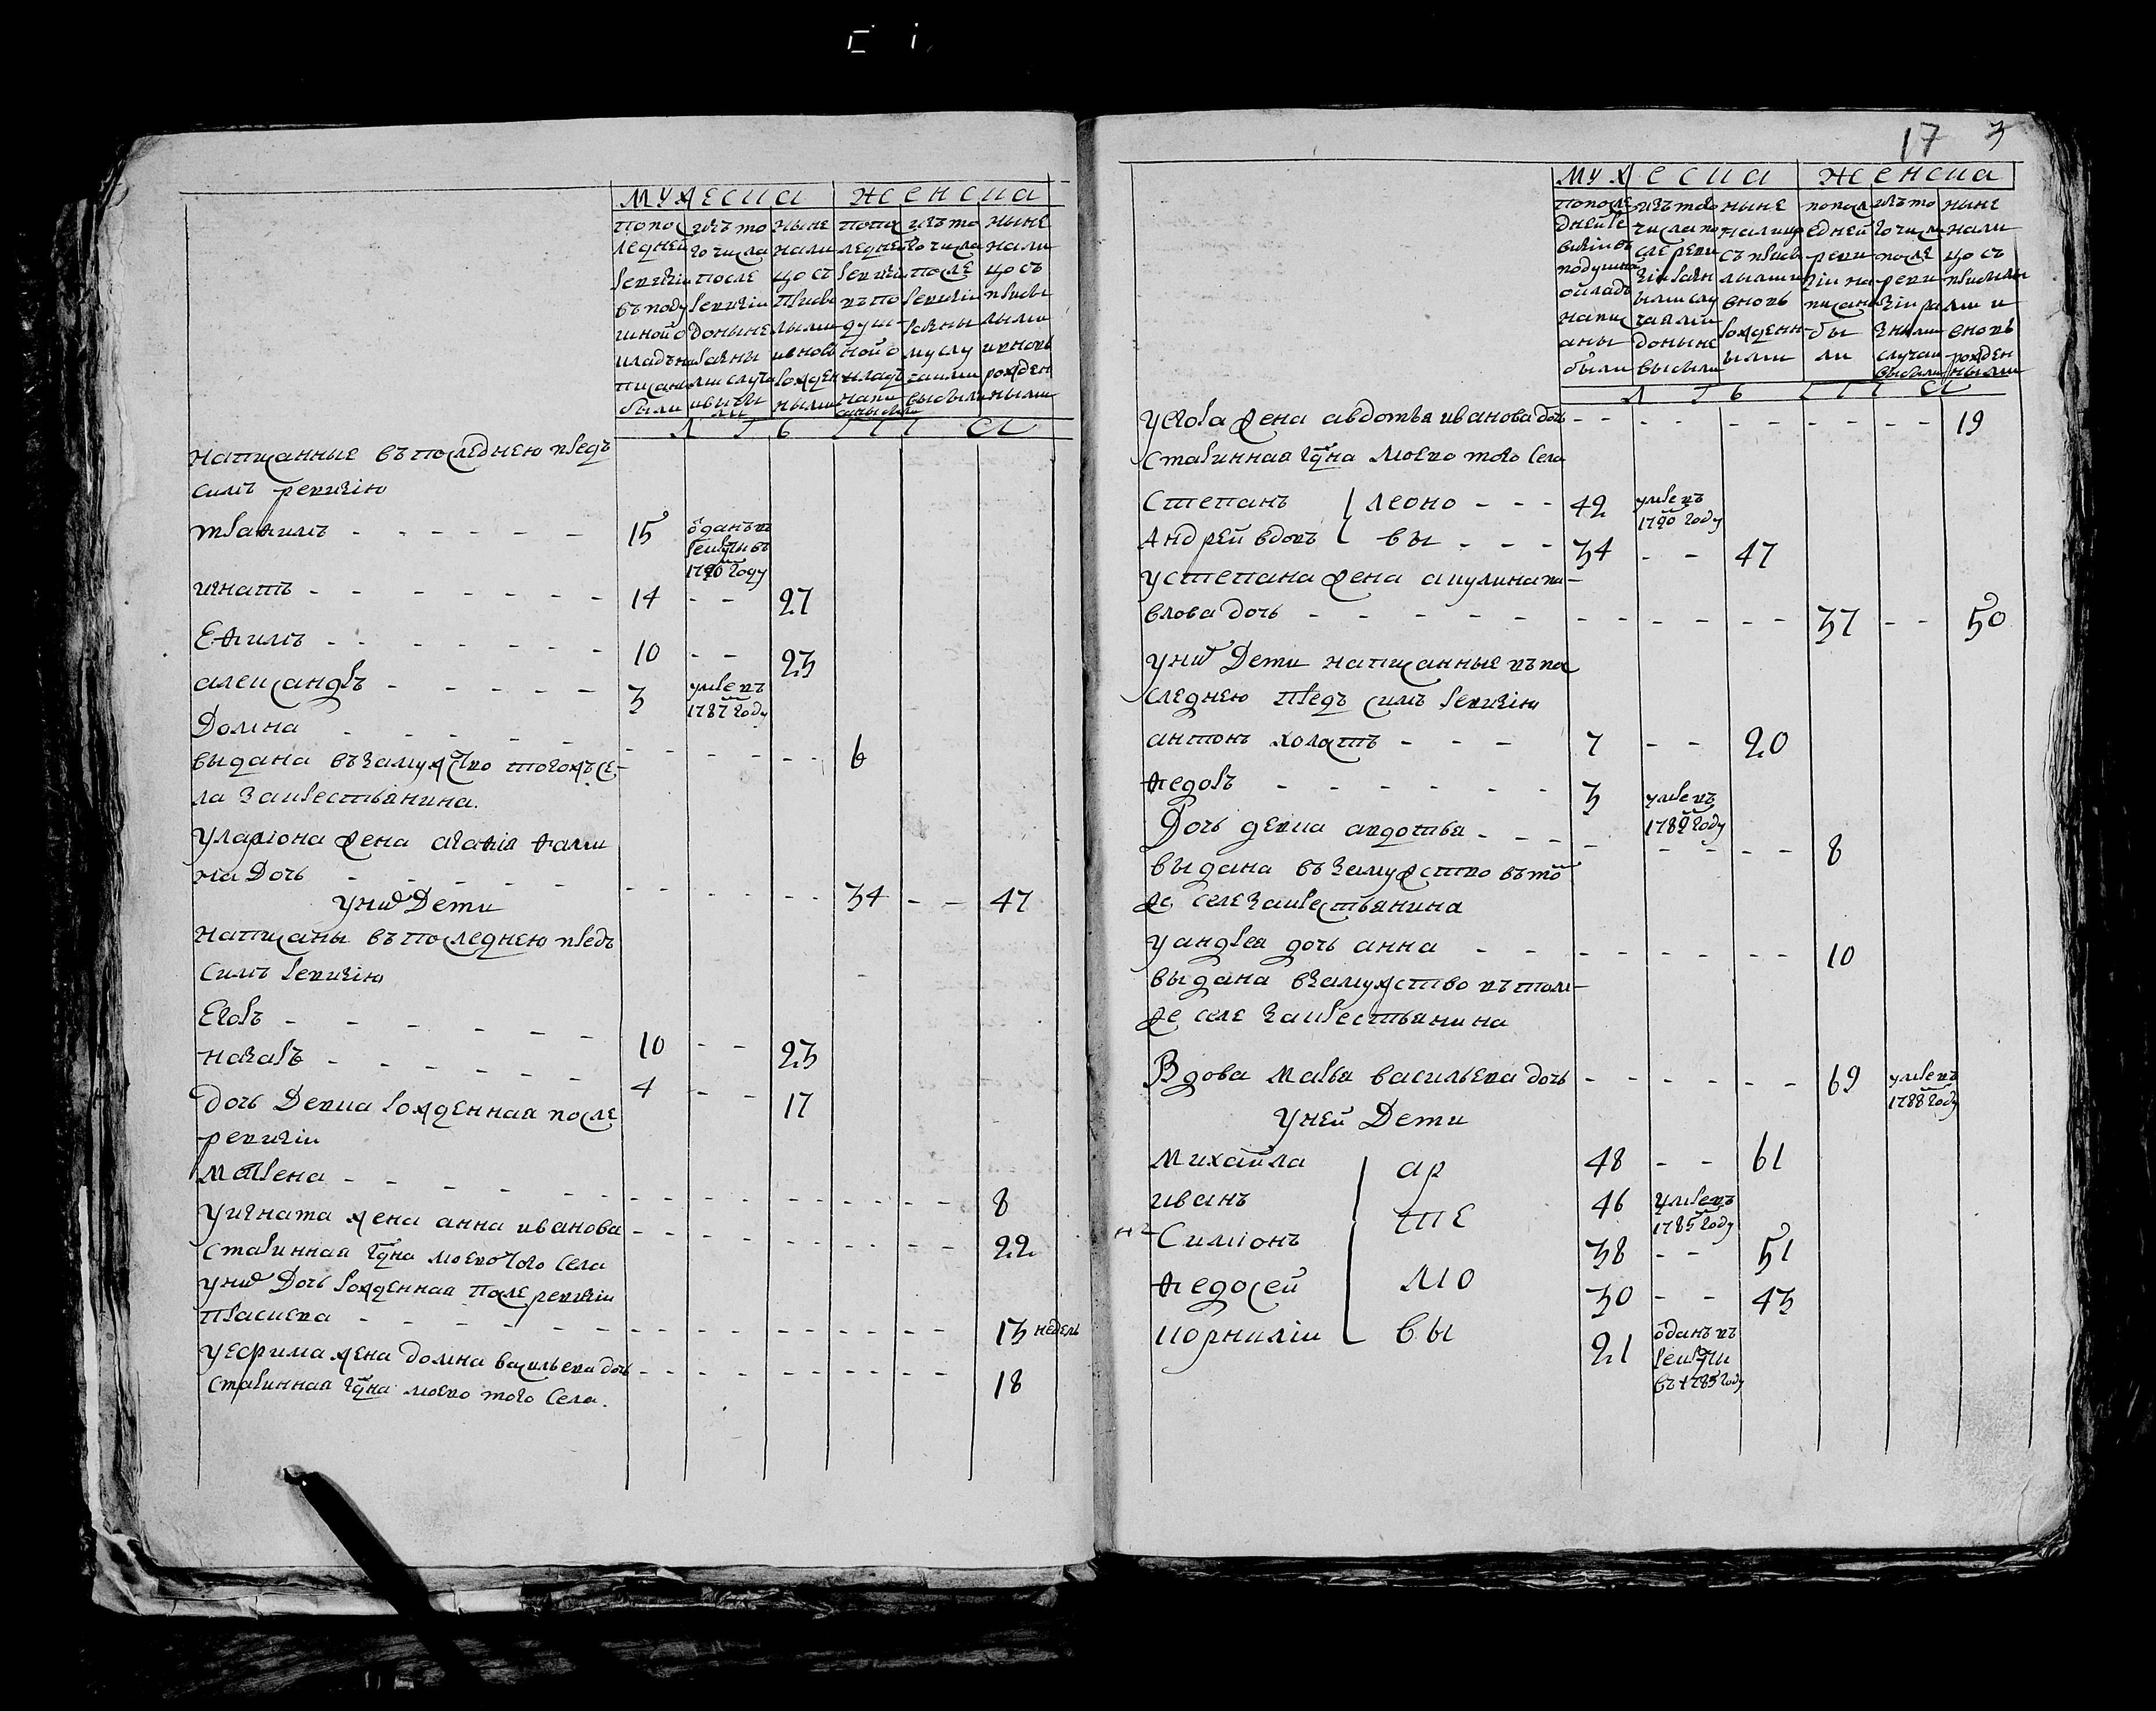 мужеска женска
попоследней ревизии въ подушной окладъ написаны были
изъ того числа после ревизии доныне разными случаи выбыли
ныне налицо съ прибылыми и вновь рожденными
попоследней ревизии въ подушной окладъ написаны были
изъ того числа после ревизии разными случаи выбыли
ныне налицо съ прибылыми и вновь рожденными
Л Т Б Л Т А
написанные въ последнею предъ
симъ ревизию
трафимъ - - - - - - 15 ѿданъ въ рекруты въ 1790 году
игнатъ - - - - - - - 14 - - 27
Ефимъ - - - - - - - 10 - - 23
александръ - - - - - 3 умре въ 1787 году
Домна - - - - - - - - - - 6
выдана въ замужство тогожъ се-
ла закрестьянина.
у лариона жена агафия
на дочь - - - - - - - - - 34 - - 47
у них Дети
написаны въ последнею предъ
симъ ревизию
Егоръ - - - - - - - 10 - - 23
назаръ - - - - - - - 4 - - 17
дочь Девка рожденная после
ревизии
Матрена - - - - - - - - - - - 8
у игната жена анна иванова - - - - - - - - 22
старинная гдна моево того села
у них Дочь рожденная после ревизии
Прасцева - - - - - - - - - - - 13 недель
у ефима жена домна васильева дочь - - - - - - - 18
старинная гдна моево того села.
17 3
мужеска женска
попоследней ревизии въ подушной окладъ написаны были
изъ того числа после ревизии разными случаями доныне выбыли
ныне налицо съ прибылыми вновь рожденными
попоследней ревизии написаны были
изъ того числа после ревизии разными случаи выбыли
ныне налицо съ прибылыми и вновь рожденными
Л Т Б Л Т А
у егора жена авдотья иванова дочь - - - - - - - - 19
старинная гдна моево того села
Степанъ леоно - - - 42 умре въ 1790 году
Андрей вдовъ вы - - - 34 - - 47
у степана жена акулина па-
влова дочь - - - - - - - - - - 37 - - 50
у них Дети написанные въ по
следнею предъ симъ ревизию
антонъ холатъ - - - 7 - - 20
федоръ - - - - - - 3 умре въ 1789 году
Дочь девка авдотья - - - - - - - 8
выдана въ замужство въ то
же селе закрестьянина
у андрея дочь анна - - - - - - - 10
выдана взамужство въ том-
же селе закрестьянина
Вдова марья васильева дочь - - - - - - 69 умре въ 1788 году
У ней Дети
михайла ар 48 - - 61
иванъ те 46 умре въ 1785 году
Симионъ 38 - - 51
федосей мо 30 - - 43
корнилии вы 21 ѿданъ въ рекруты въ 1785 году